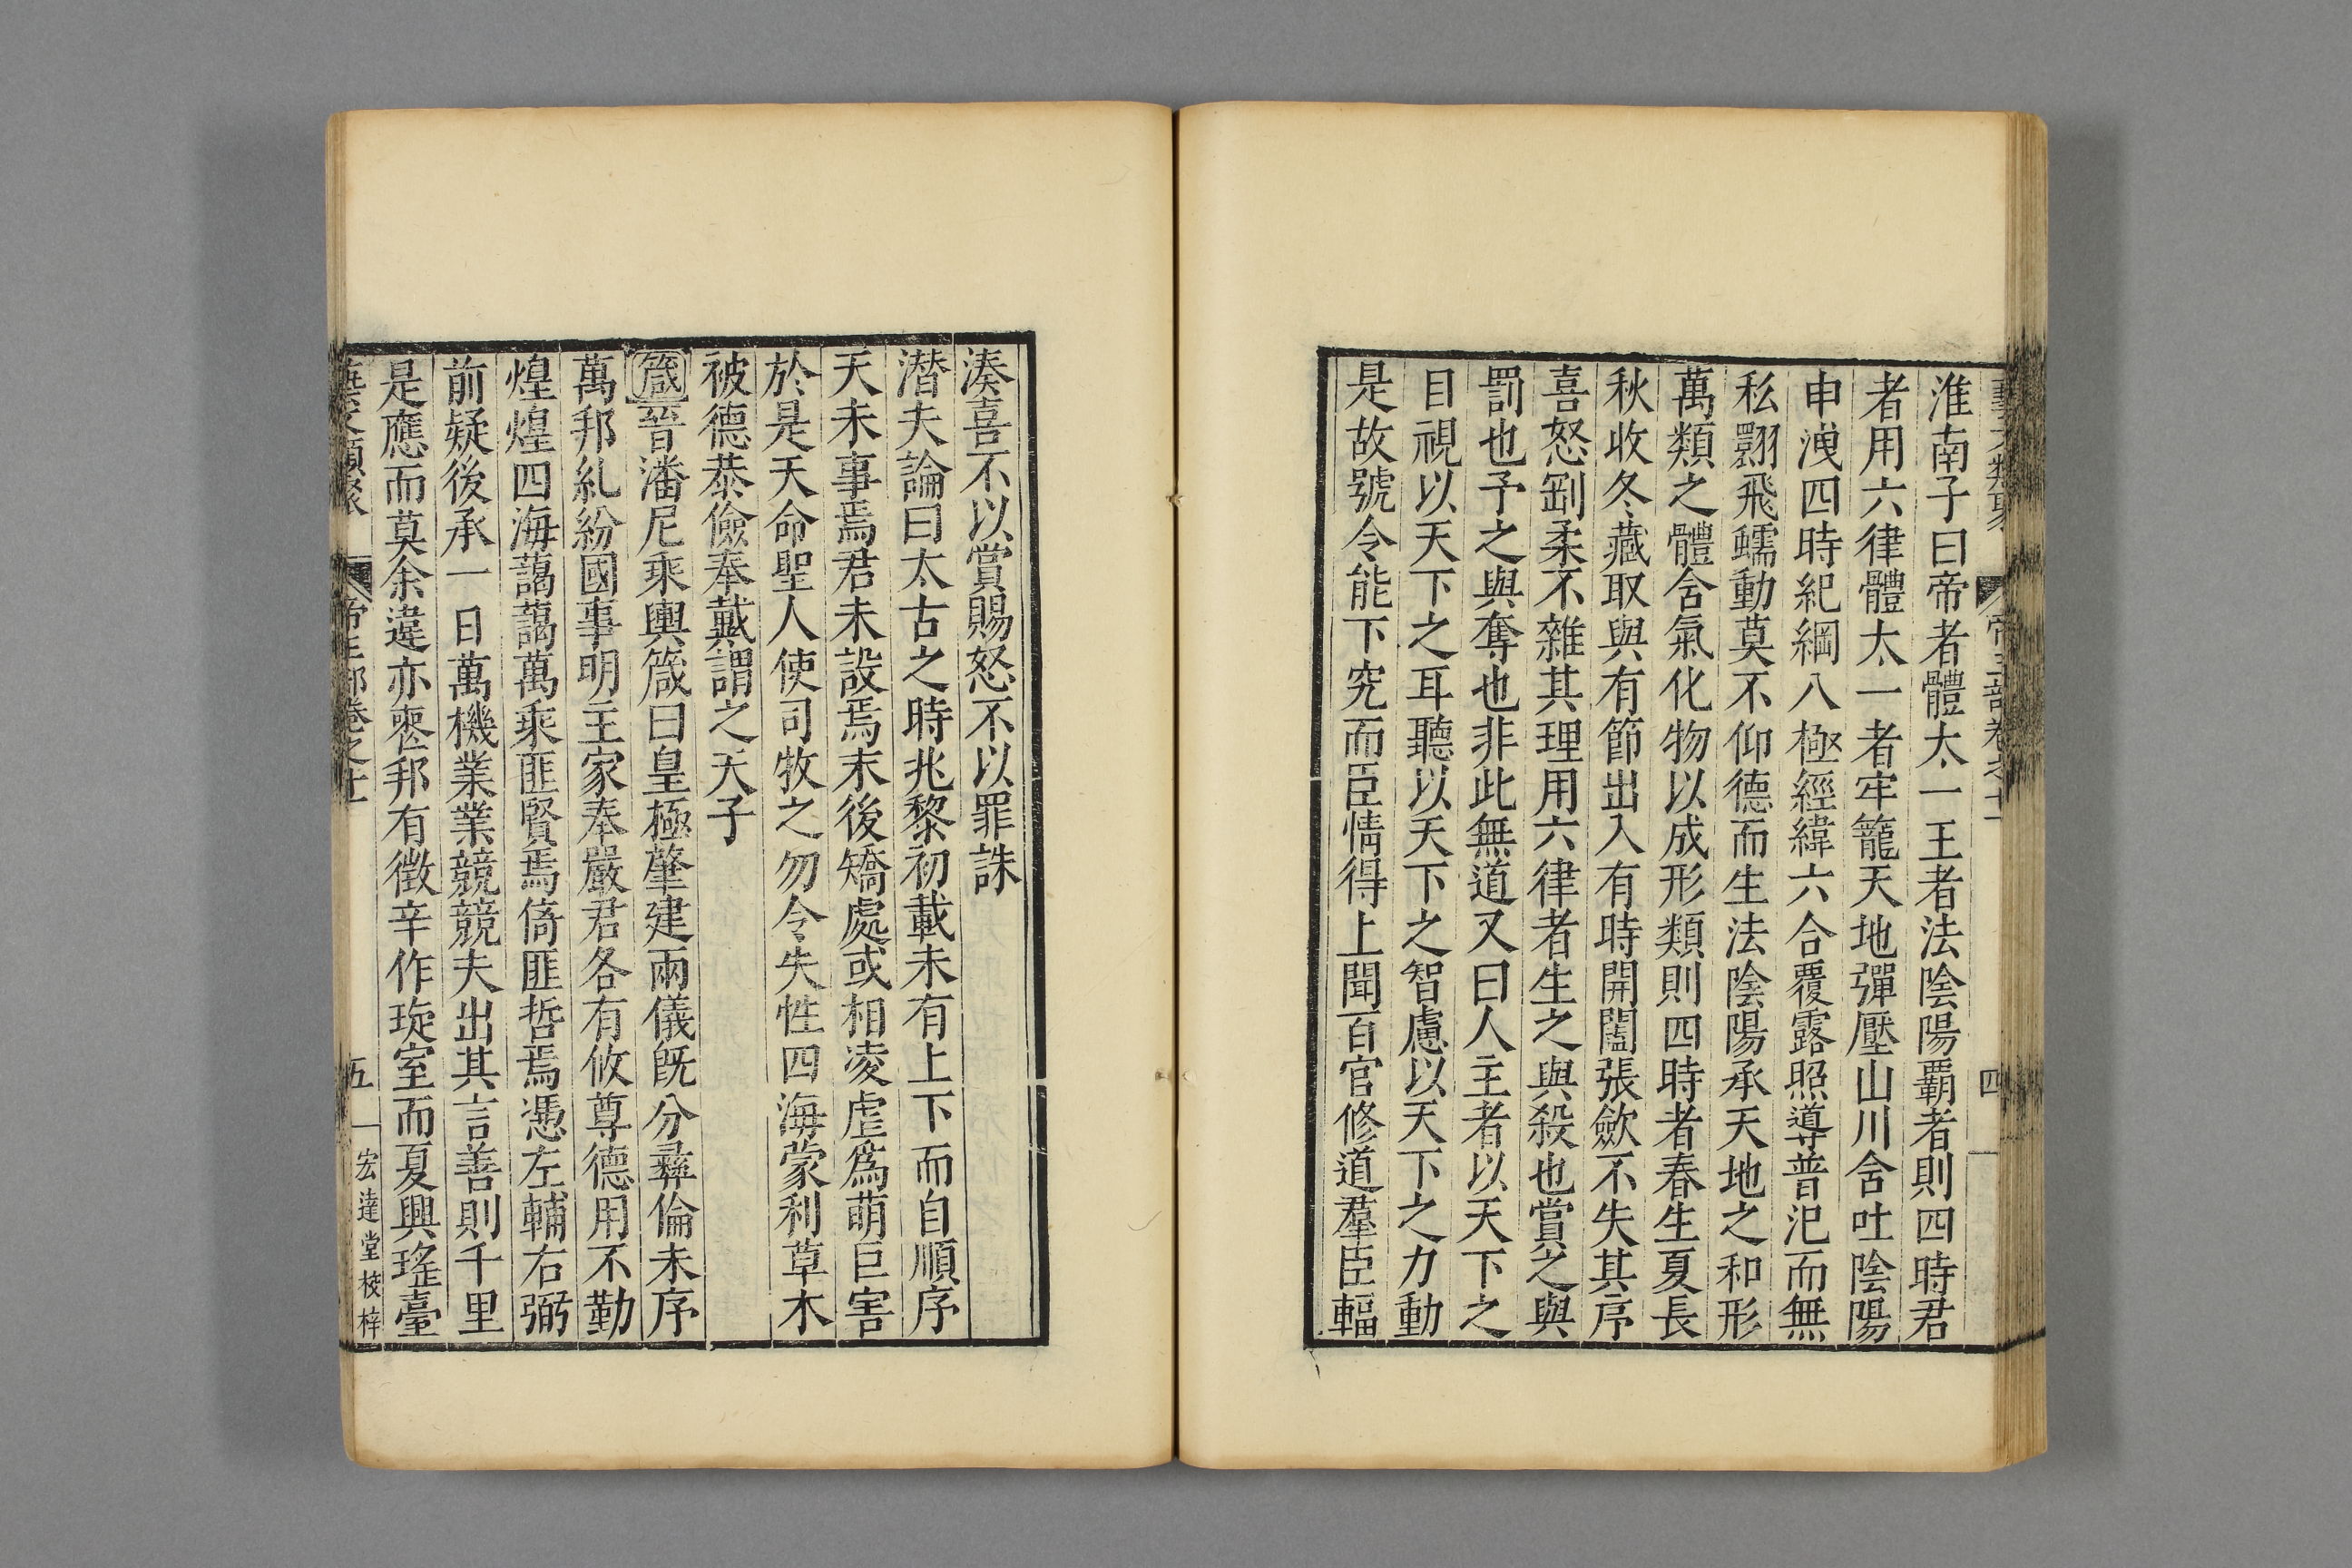 藝文類聚 帝王部卷之十一 四
淮南子曰帝者體太一王者法陰陽霸者則四時君
者用六律體太一者牢籠天地彈壓山川含吐陰陽
申洩四時紀綱八極經緯六合覆露照導普汜而無
私翾飛蠕動莫不仰德而生法陰陽承天地之和形
萬類之體含氣化物以成形類則四時者春生夏長
秋收冬藏取與有節出入有時開闔張歛不失其序
喜怒剛柔不雜其理用六律者生之與殺也賞之與
罰也予之與奪也非此無道又曰人主者以天下之
目視以天下之耳聽以天下之智慮以天下之力動
是故號令能下究而臣情得上聞百官修道羣臣輻
湊喜不以賞賜怒不以罪誅
潛夫論曰太古之時兆黎初載未有上下而自順序
天未事焉君未設焉末後矯處或相凌虐爲萌巨害
於是天命聖人使司牧之勿令失性四海蒙利草木
被德恭儉奉戴謂之天子
箴晉潘尼乘輿箴曰皇極肇建兩儀旣分彝倫未序
萬邦糺紛國事明主家奉嚴君各有攸尊德用不勤
煌煌四海藹藹萬乘匪賢焉倚匪哲焉憑左輔右弼
前疑後承一日萬機業業競競夫出其言善則千里
是應而莫余違亦喪邦有徵辛作琁室而夏興瑤臺
藝文類聚 帝王部卷之十一 五 宏達堂校梓